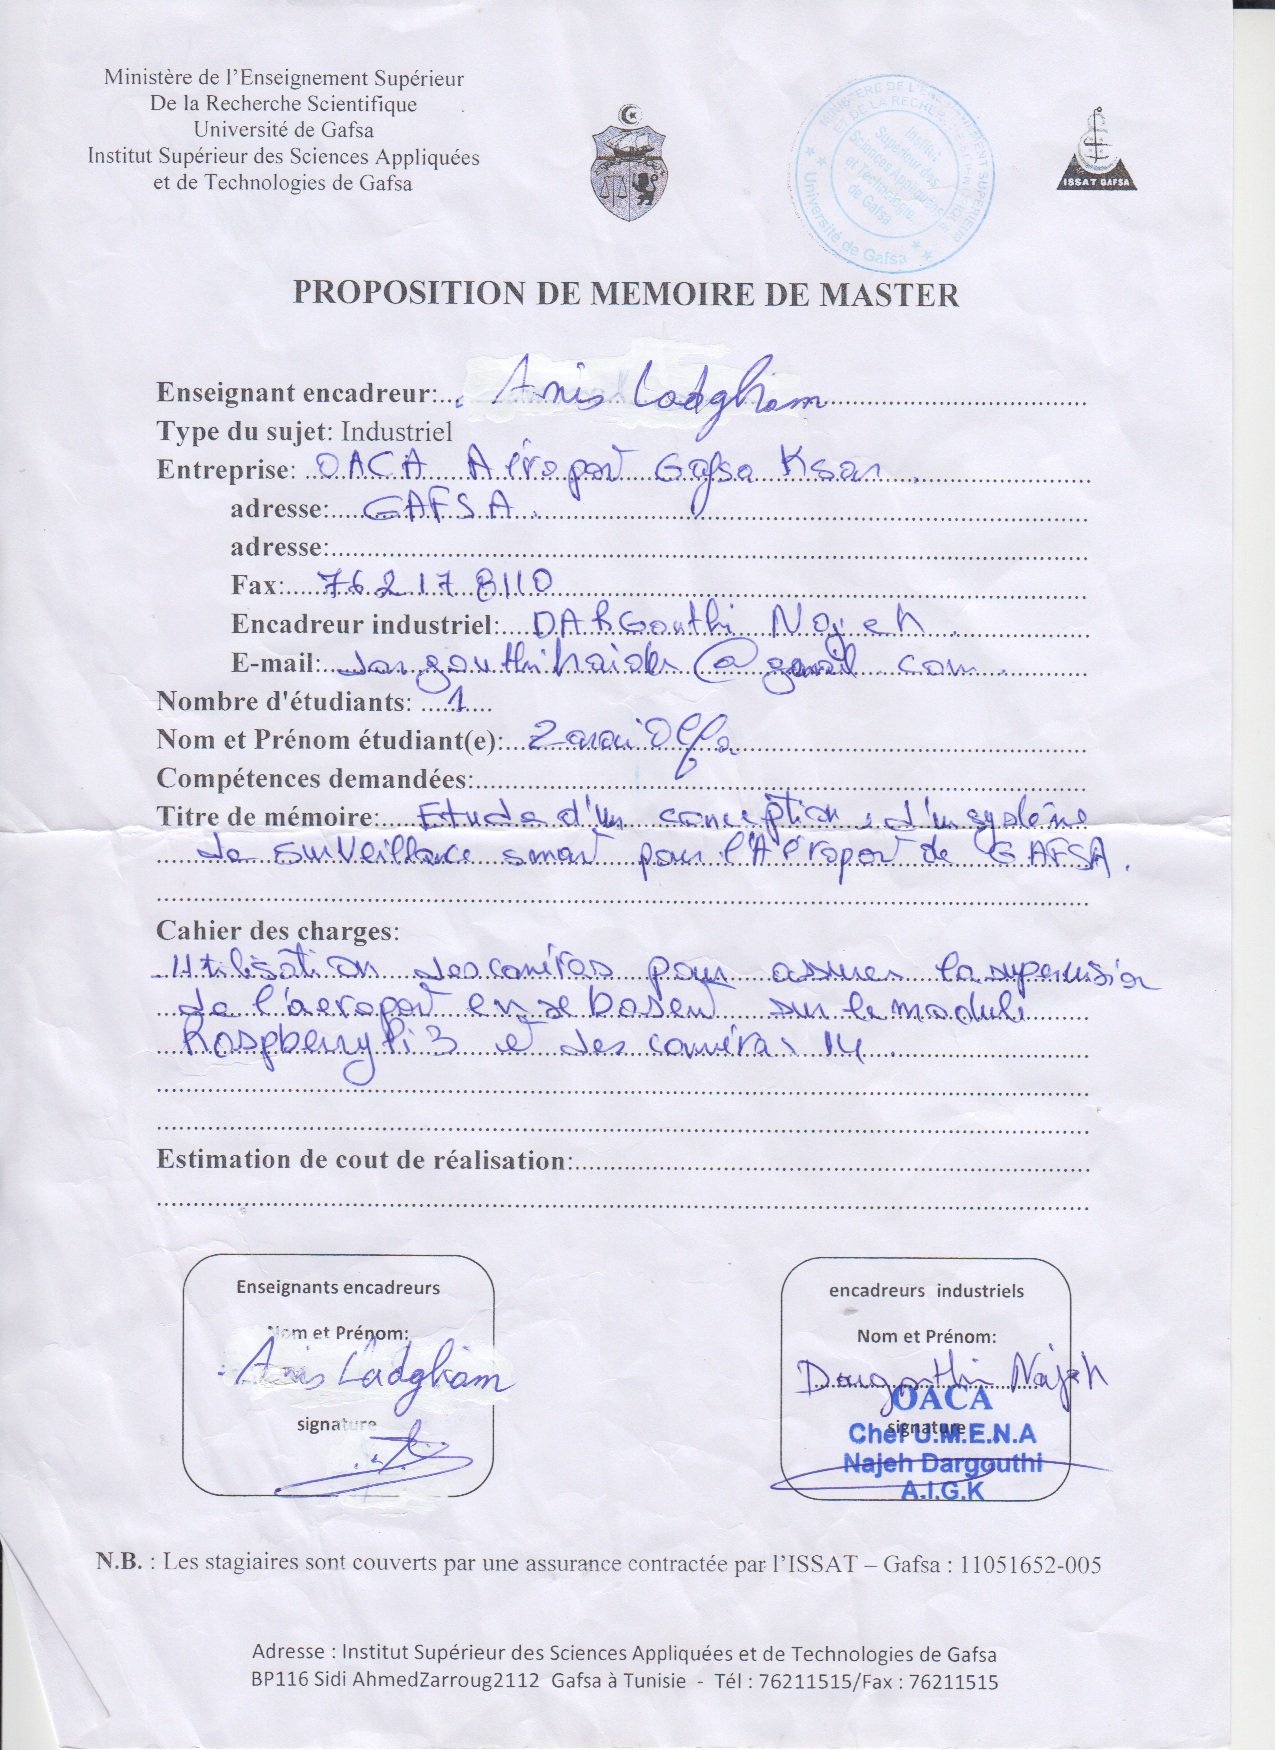 Ministère de l'Enseignement Supérieur
De la Recherche Scientifique
Université de Gafsa
Institut Supérieur des Sciences Appliquées
et de Technologies de Gafsa
MINISTERE DE L'ENSEIGNEMENT SUPERIEUR
ET DE LA RECHERCHE SCIENTIFIQUE
Institut
Supérieur des
Sciences Appliquées
et Technologie
de Gafsa
Université de Gafsa
ISSAT GAFSA
PROPOSITION DE MEMOIRE DE MASTER
Enseignant encadreur: Anis Ladgham
Type du sujet: Industriel
Entreprise: OACA Aéroport Gafsa Ksar
adresse: GAFSA.
adresse:
Fax: 76 217 8110
Encadreur industriel: DARGouthi Najeh
E-mail: @gmail.com
Nombre d'étudiants: 1
Nom et Prénom étudiant(e): Zarai Olfa
Compétences demandées:
Titre de mémoire: Etude d'un conception d'un système
de surveillance smart pour l'Aéroport de GAFSA.
Cahier des charges:
Utilisation des caméras pour assurer la supervision
de l'aeroport en se basent sur le module
Raspberry Pi 3 et des caméras
Estimation de cout de réalisation:
Enseignants encadreurs
Nom et Prénom:
Anis Ladgham
signature
encadreurs industriels
Nom et Prénom:
Dargouthi Najeh
OACA
signature
Chef U.M.E.N.A
Najeh Dargouthi
A.I.G.K
N.B. : Les stagiaires sont couverts par une assurance contractée par l'ISSAT – Gafsa : 11051652-005
Adresse : Institut Supérieur des Sciences Appliquées et de Technologies de Gafsa
BP116 Sidi AhmedZarroug2112 Gafsa à Tunisie - Tél : 76211515/Fax : 76211515